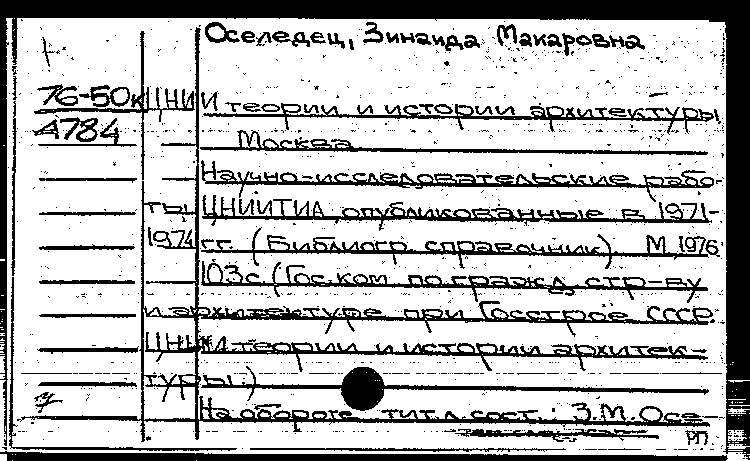 Оселедец, Зинаида Макаровна
76-50к ЦНИИ теории и истории архитектуры
A784
Москва
Научно-исследовательские рабо-
ты ЦНИИТИА, опубликованные в 1971-
1974 гг. (Библиогр. справочник). М, 1976
103с. (Гос.ком. по гражд. стр-ву
и архитектуре при Госстрое СССР.
ЦНИИ теории и истории архитек-
туры.)
На обороте тит.л. сост.: З.М.Осе-
РП